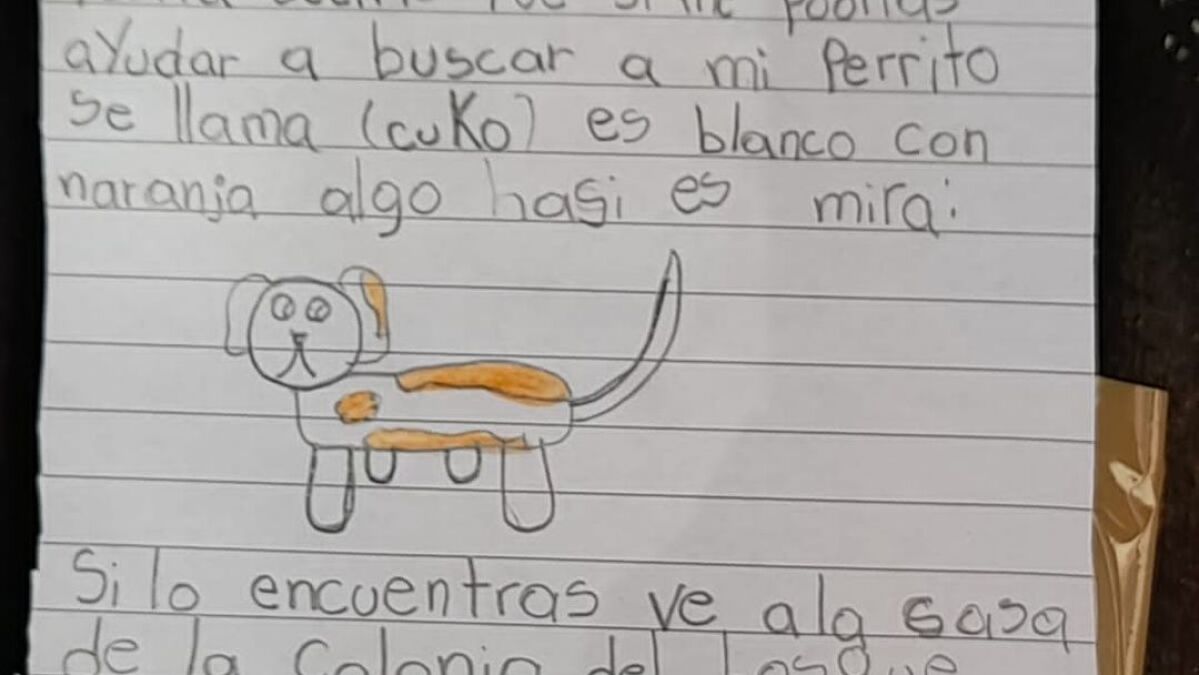 si me podrias
ayudar a buscar a mi Perrito
se llama (cuKo) es blanco con
naranja algo hasi es mira:
Si lo encuentras ve ala casa
de la Colonia del